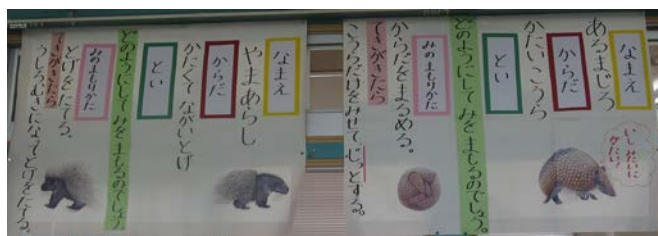 なまえ
あるまじろ
いしみたいに
かたい!
からだ
かたいこうら
とい
どのようにしてみをまもるのでしょう。
みのまもりかた
からだをまるめる。
てきがきたら
こうらだけをみせて、じっとする。
なまえ
やまあらし
からだ
かたくてながいとげ
とい
どのようにしてみをまもるのでしょう
みのまもりかた
とげをたてる。
てきがきたら
うしろむきになってとげをたてる。